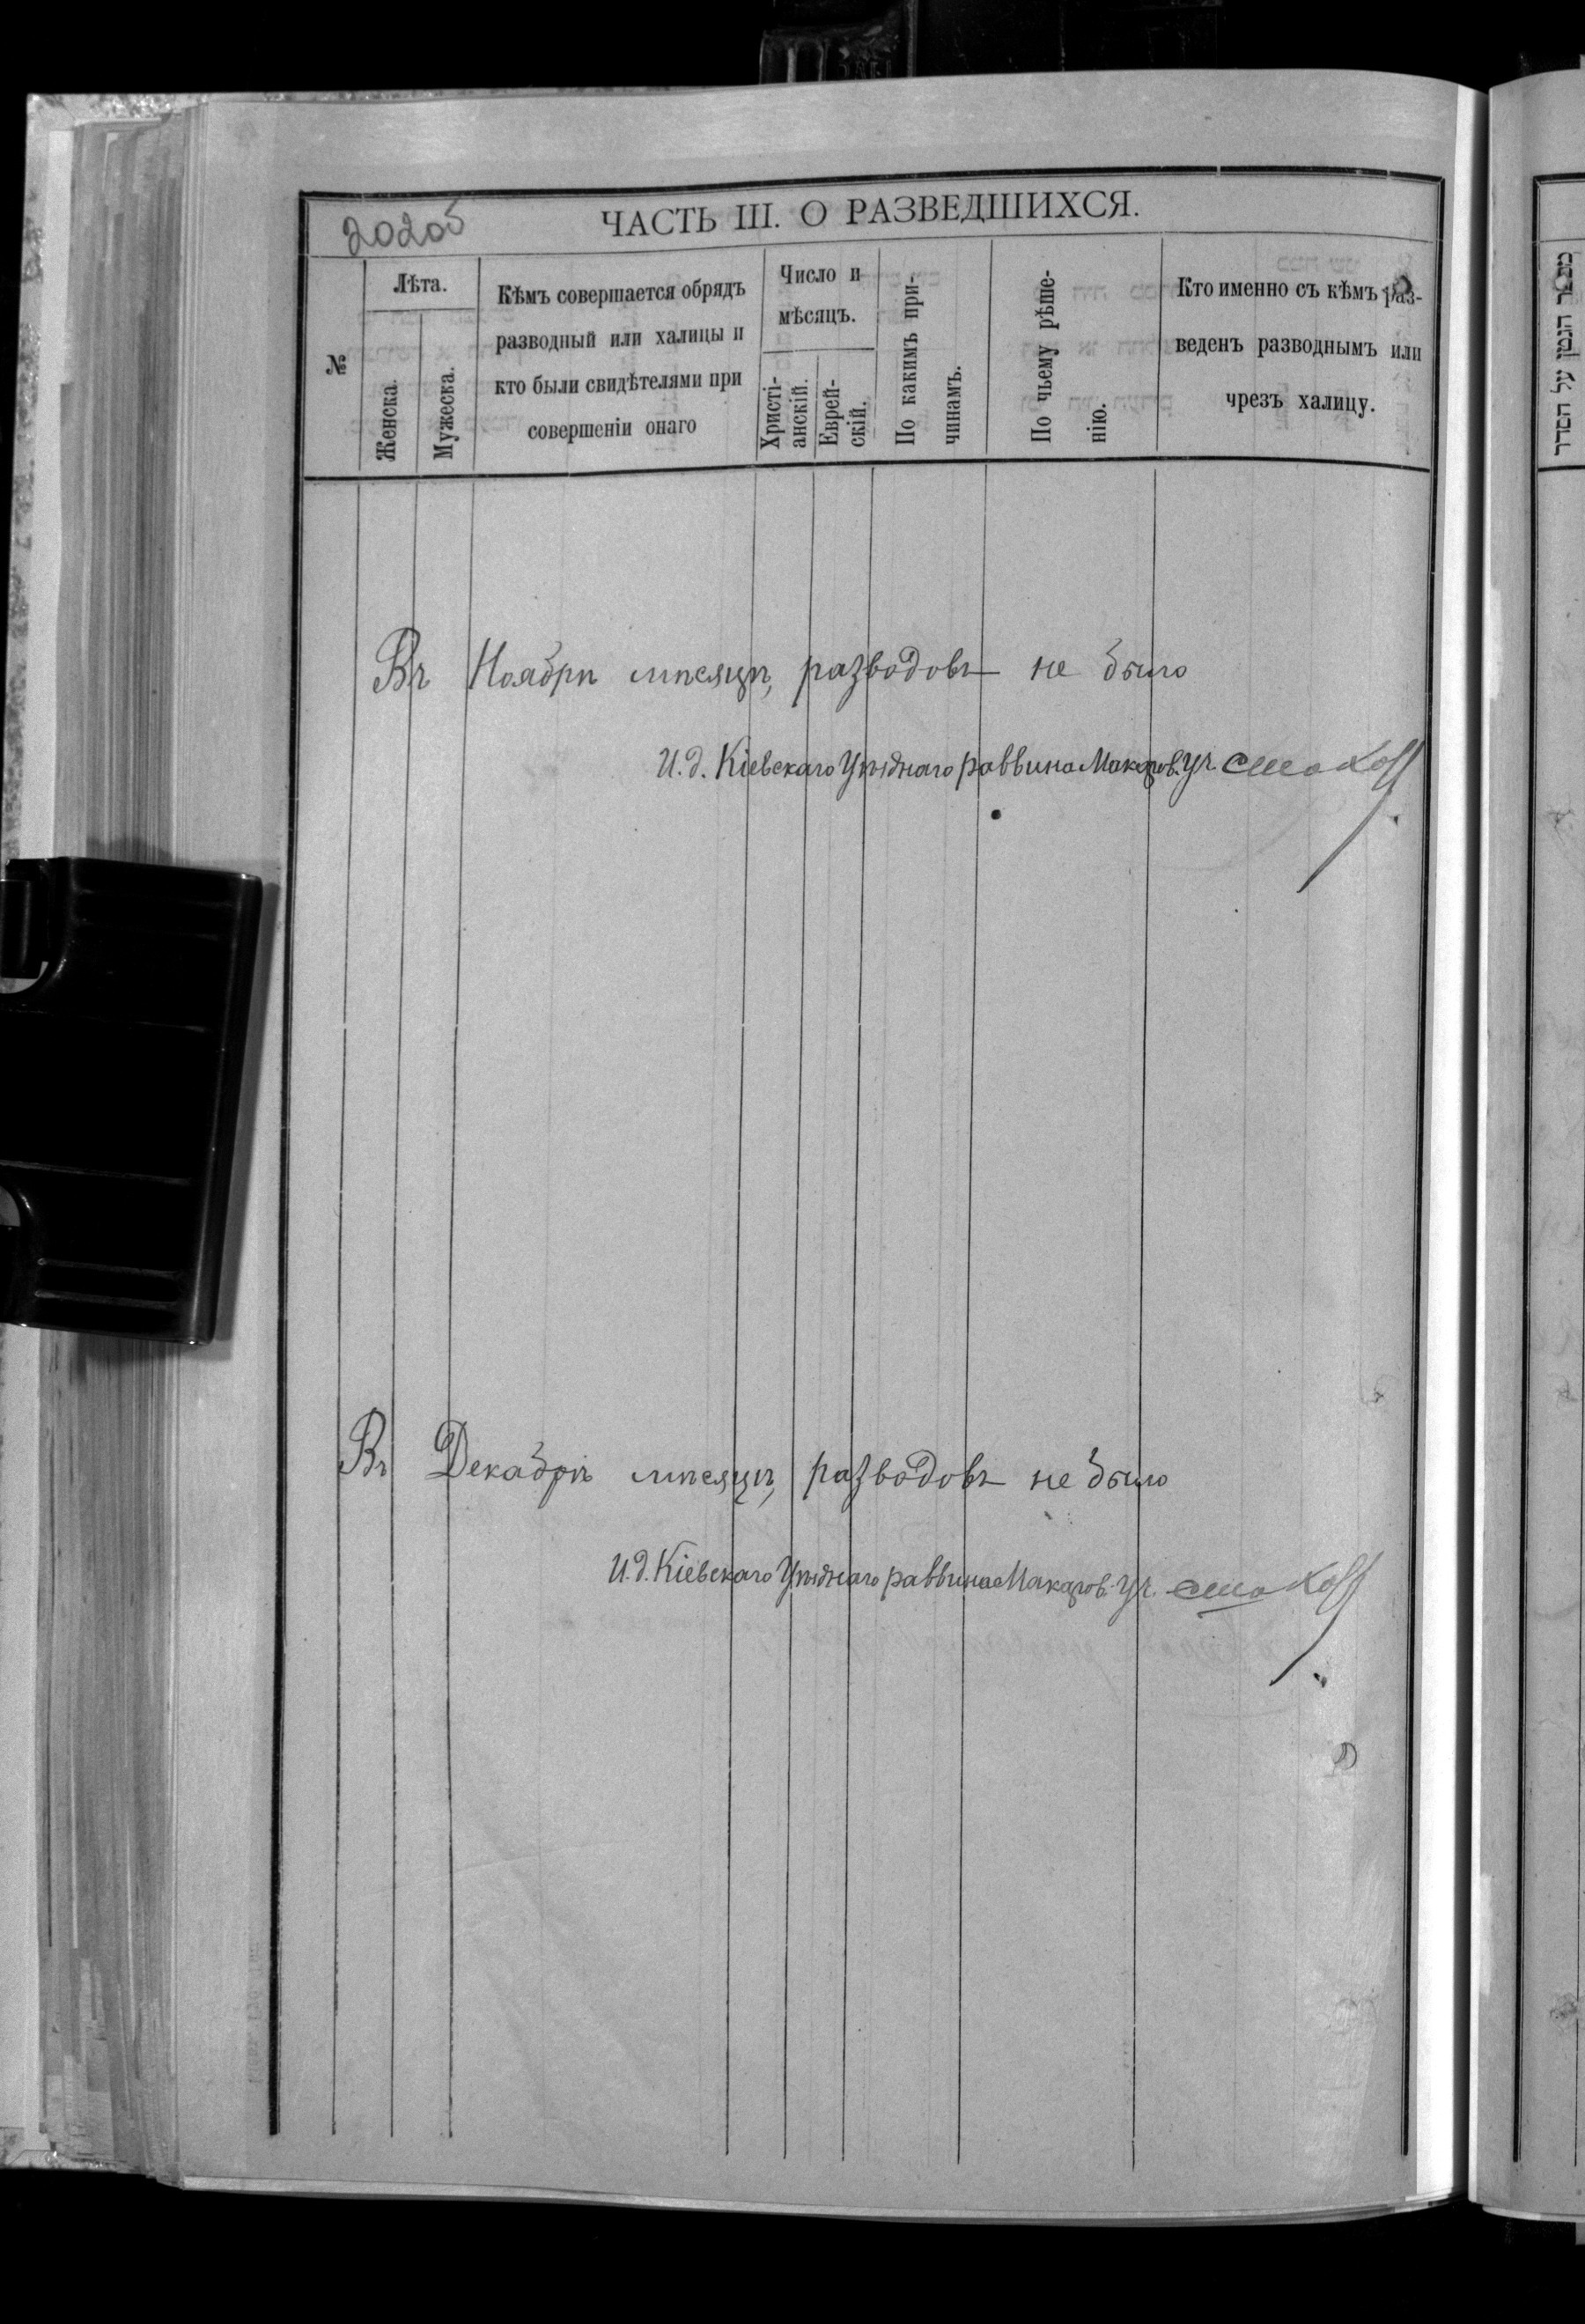 20205
ЧАСТЬ III. О РАЗВЕДШИХСЯ.
№
Лѣта.
Женска.
Мужеска.
Кѣмъ совершается обрядъ
разводный или халицы и
кто были свидѣтелями при
совершеніи онаго
Число и
мѣсяцъ.
Христі-
анскій.
Еврей-
скій.
По какимъ при-
чинамъ.
По чьему рѣше-
нію.
Кто именно съ кѣмъ раз-
веденъ разводнымъ или
чрезъ халицу.
Въ Ноябрѣ мѣсяцѣ, разводовъ не было
И.д. Кіевскаго Уѣзднаго раввина Макаров. Уч.
Въ Декабрѣ мѣсяцѣ, разводовъ не было
И.д. Кіевскаго Уѣзднаго раввина Макаров. Уч.